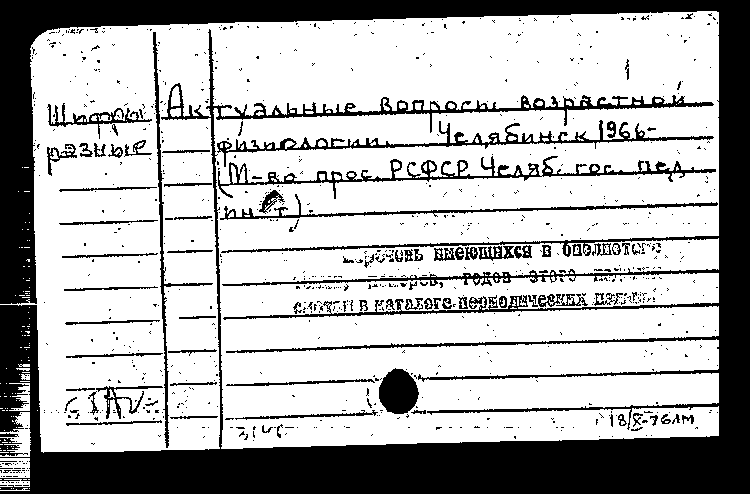 Шифры разные
Актуальные вопросы возрастной
физиологии. Челябинск, 1966-
(М-во прос. РСФСР. Челяб. гос. пед.
ин-т).
Перечень имеющихся в библиотеке
номеров, годов этого
смотри в каталоге периодических
18/X-76